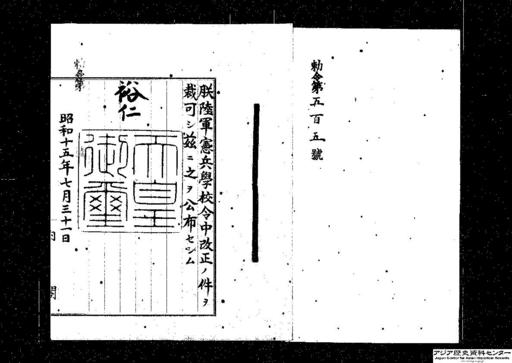 勅令第五百五號
朕陸軍憲兵學校令中改正ノ件ヲ
裁可シ茲ニ之ヲ公布セシム
裕仁
天皇御璽
昭和十五年七月三十一日
アジア歴史資料センター
Japan Center for Asian Historical Records